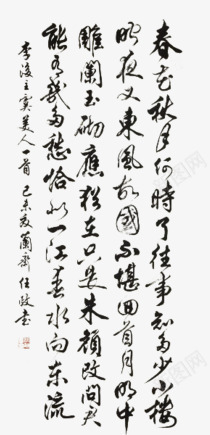 春花秋月何時了往事知多少小樓
昨夜又東風故國不堪回首月明中
雕闌玉砌應猶在只是朱顏改問君
能有幾多愁恰似一江春水向東流
李後主虞美人一首 己未夏蘭齋任政書